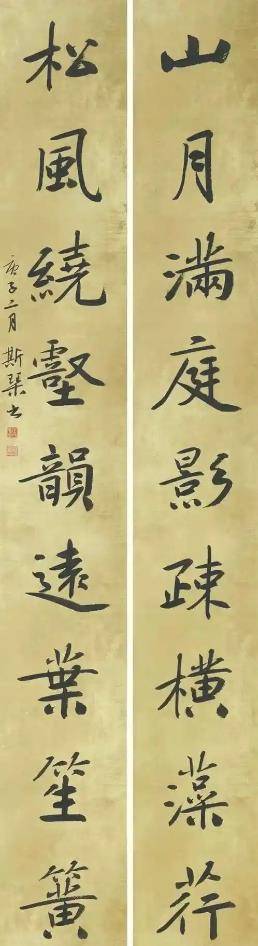 山月滿庭影疎橫藻荇
松風繞壑韻遠葉笙簧
庚子二月斯琹书